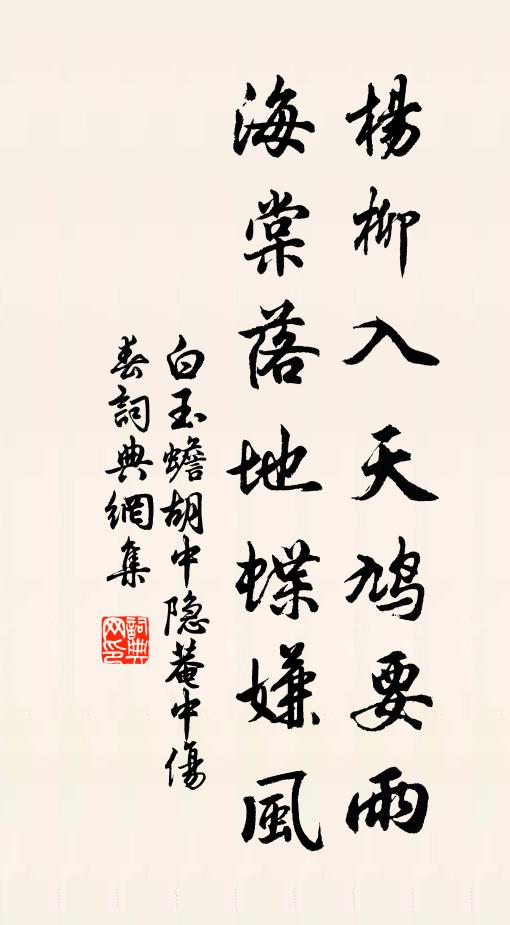 楊柳入天鳩要雨
海棠落地蝶嫌風
白玉蟾胡中隐菴中傷
春詞典網集
詞典
网印